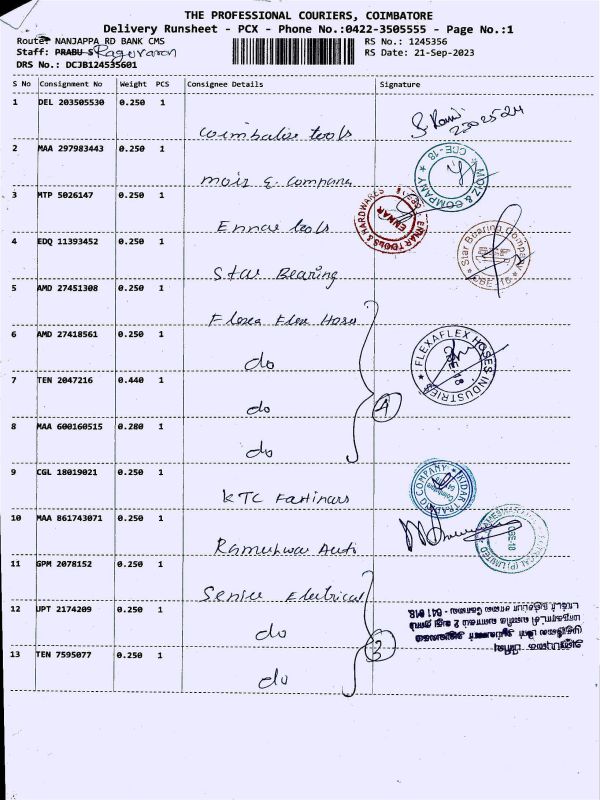 THE PROFESSIONAL COURIERS, COIMBATORE
Delivery Runsheet - PCX - Phone No.:0422-3505555 - Page No.:1
Route: NANJAPPA RD BANK CMS
RS No.: 1245356
Staff: PRABU S Raguvaran
RS Date: 21-Sep-2023
DRS No.: DCJB124535601
S No Consignment No Weight PCS Consignee Details Signature
1 DEL 203505530 0.250 1
Coimbatore tools
2 MAA 297983443 0.250 1
moiz & company
MOIZ & COMPANY ★ CBE-18
3 MTP 5026147 0.250 1
Ennar tools
ENNAR TOOLS & HARDWARES
ENNAR
4 EDQ 11393452 0.250 1
Star Bearing
Star Bearing Company ★ CBE-18 ★
5 AMD 27451308 0.250 1
Flexa Flex Hoses
6 AMD 27418561 0.250 1
do
FLEXAFLEX HOSES INDUSTRIES ★
7 TEN 2047216 0.440 1
do
4
8 MAA 600160515 0.280 1
do
9 CGL 18019021 0.250 1
KTC Fastinars
TRADING COMPANY ★
10 MAA 861743071 0.250 1
Rameshwar Auto
11 GPM 2078152 0.250 1
Senice Electrical
12 UPT 2174209 0.250 1
do
3
13 TEN 7595077 0.250 1
do